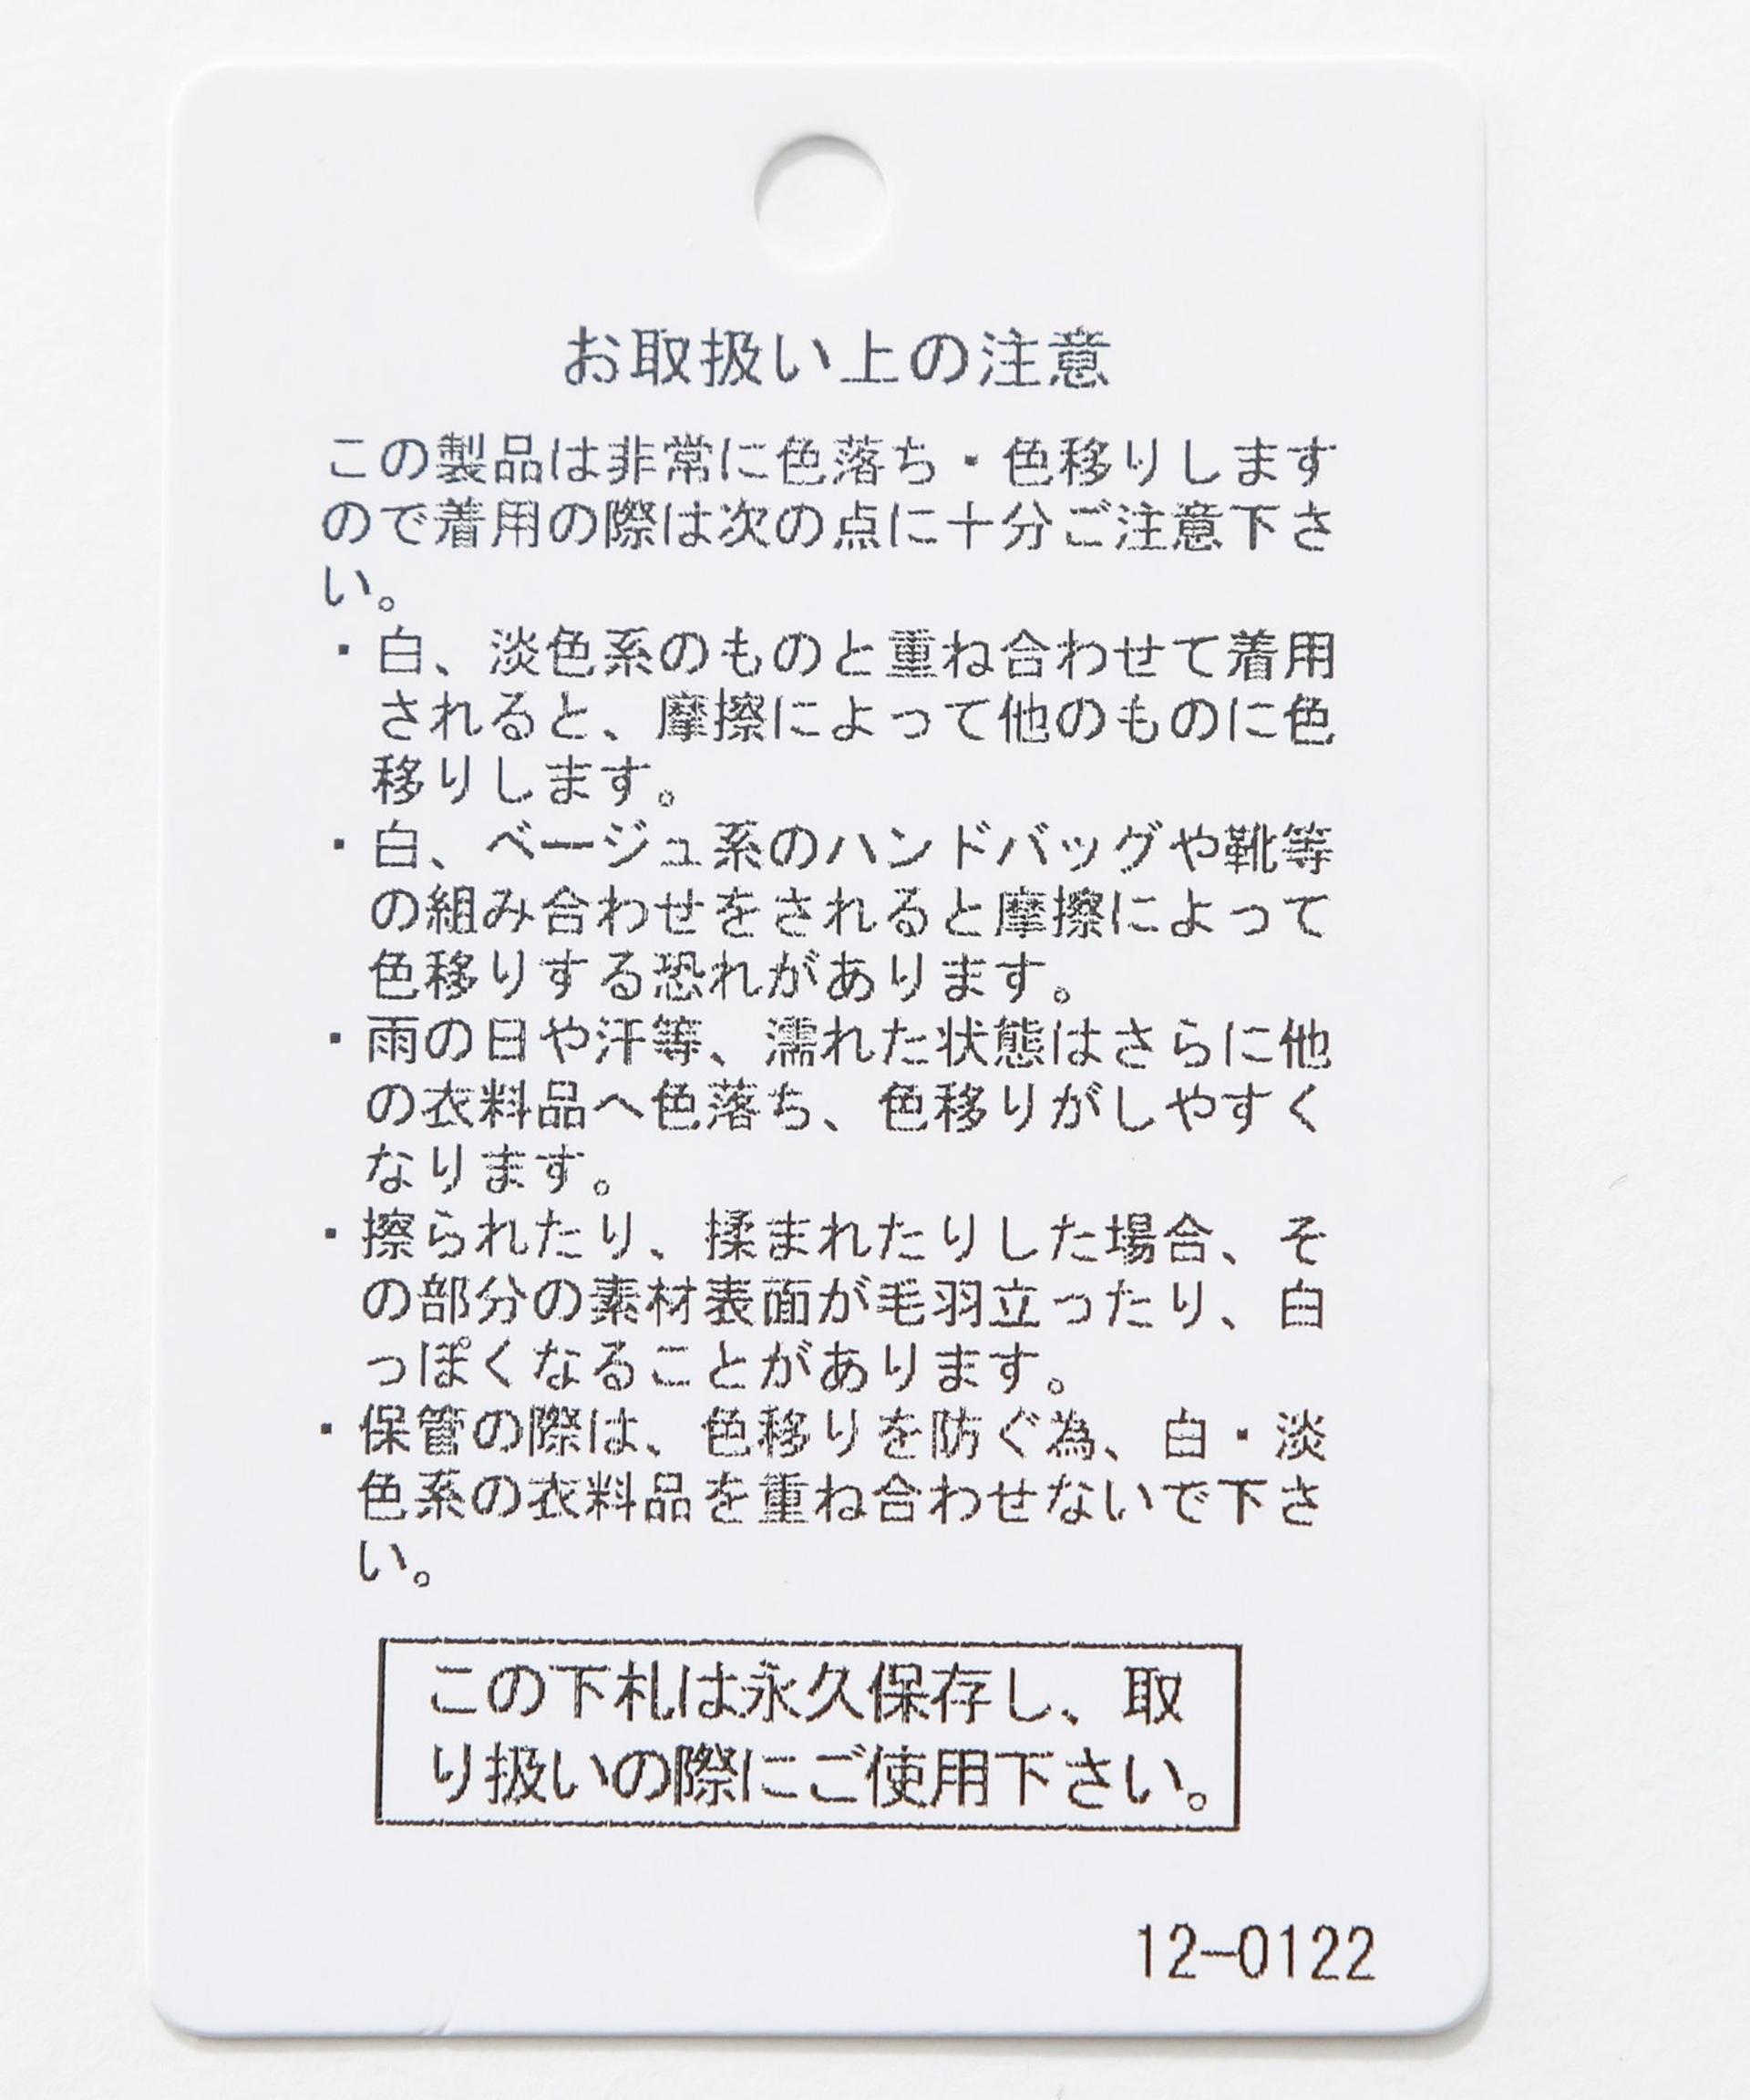 お取扱い上の注意
この製品は非常に色落ち・色移りします
ので着用の際は次の点に十分ご注意下さ
い。
・白、淡色系のものと重ね合わせて着用
されると、摩擦によって他のものに色
移りします。
・白、ベージュ系のハンドバッグや靴等
の組み合わせをされると摩擦によって
色移りする恐れがあります。
・雨の日や汗等、濡れた状態はさらに他
の衣料品へ色落ち、色移りがしやすく
なります。
・擦られたり、揉まれたりした場合、そ
の部分の素材表面が毛羽立ったり、白
っぽくなることがあります。
・保管の際は、色移りを防ぐ為、白・淡
色系の衣料品を重ね合わせないで下さ
い。
この下札は永久保存し、取
り扱いの際にご使用下さい。
12-0122